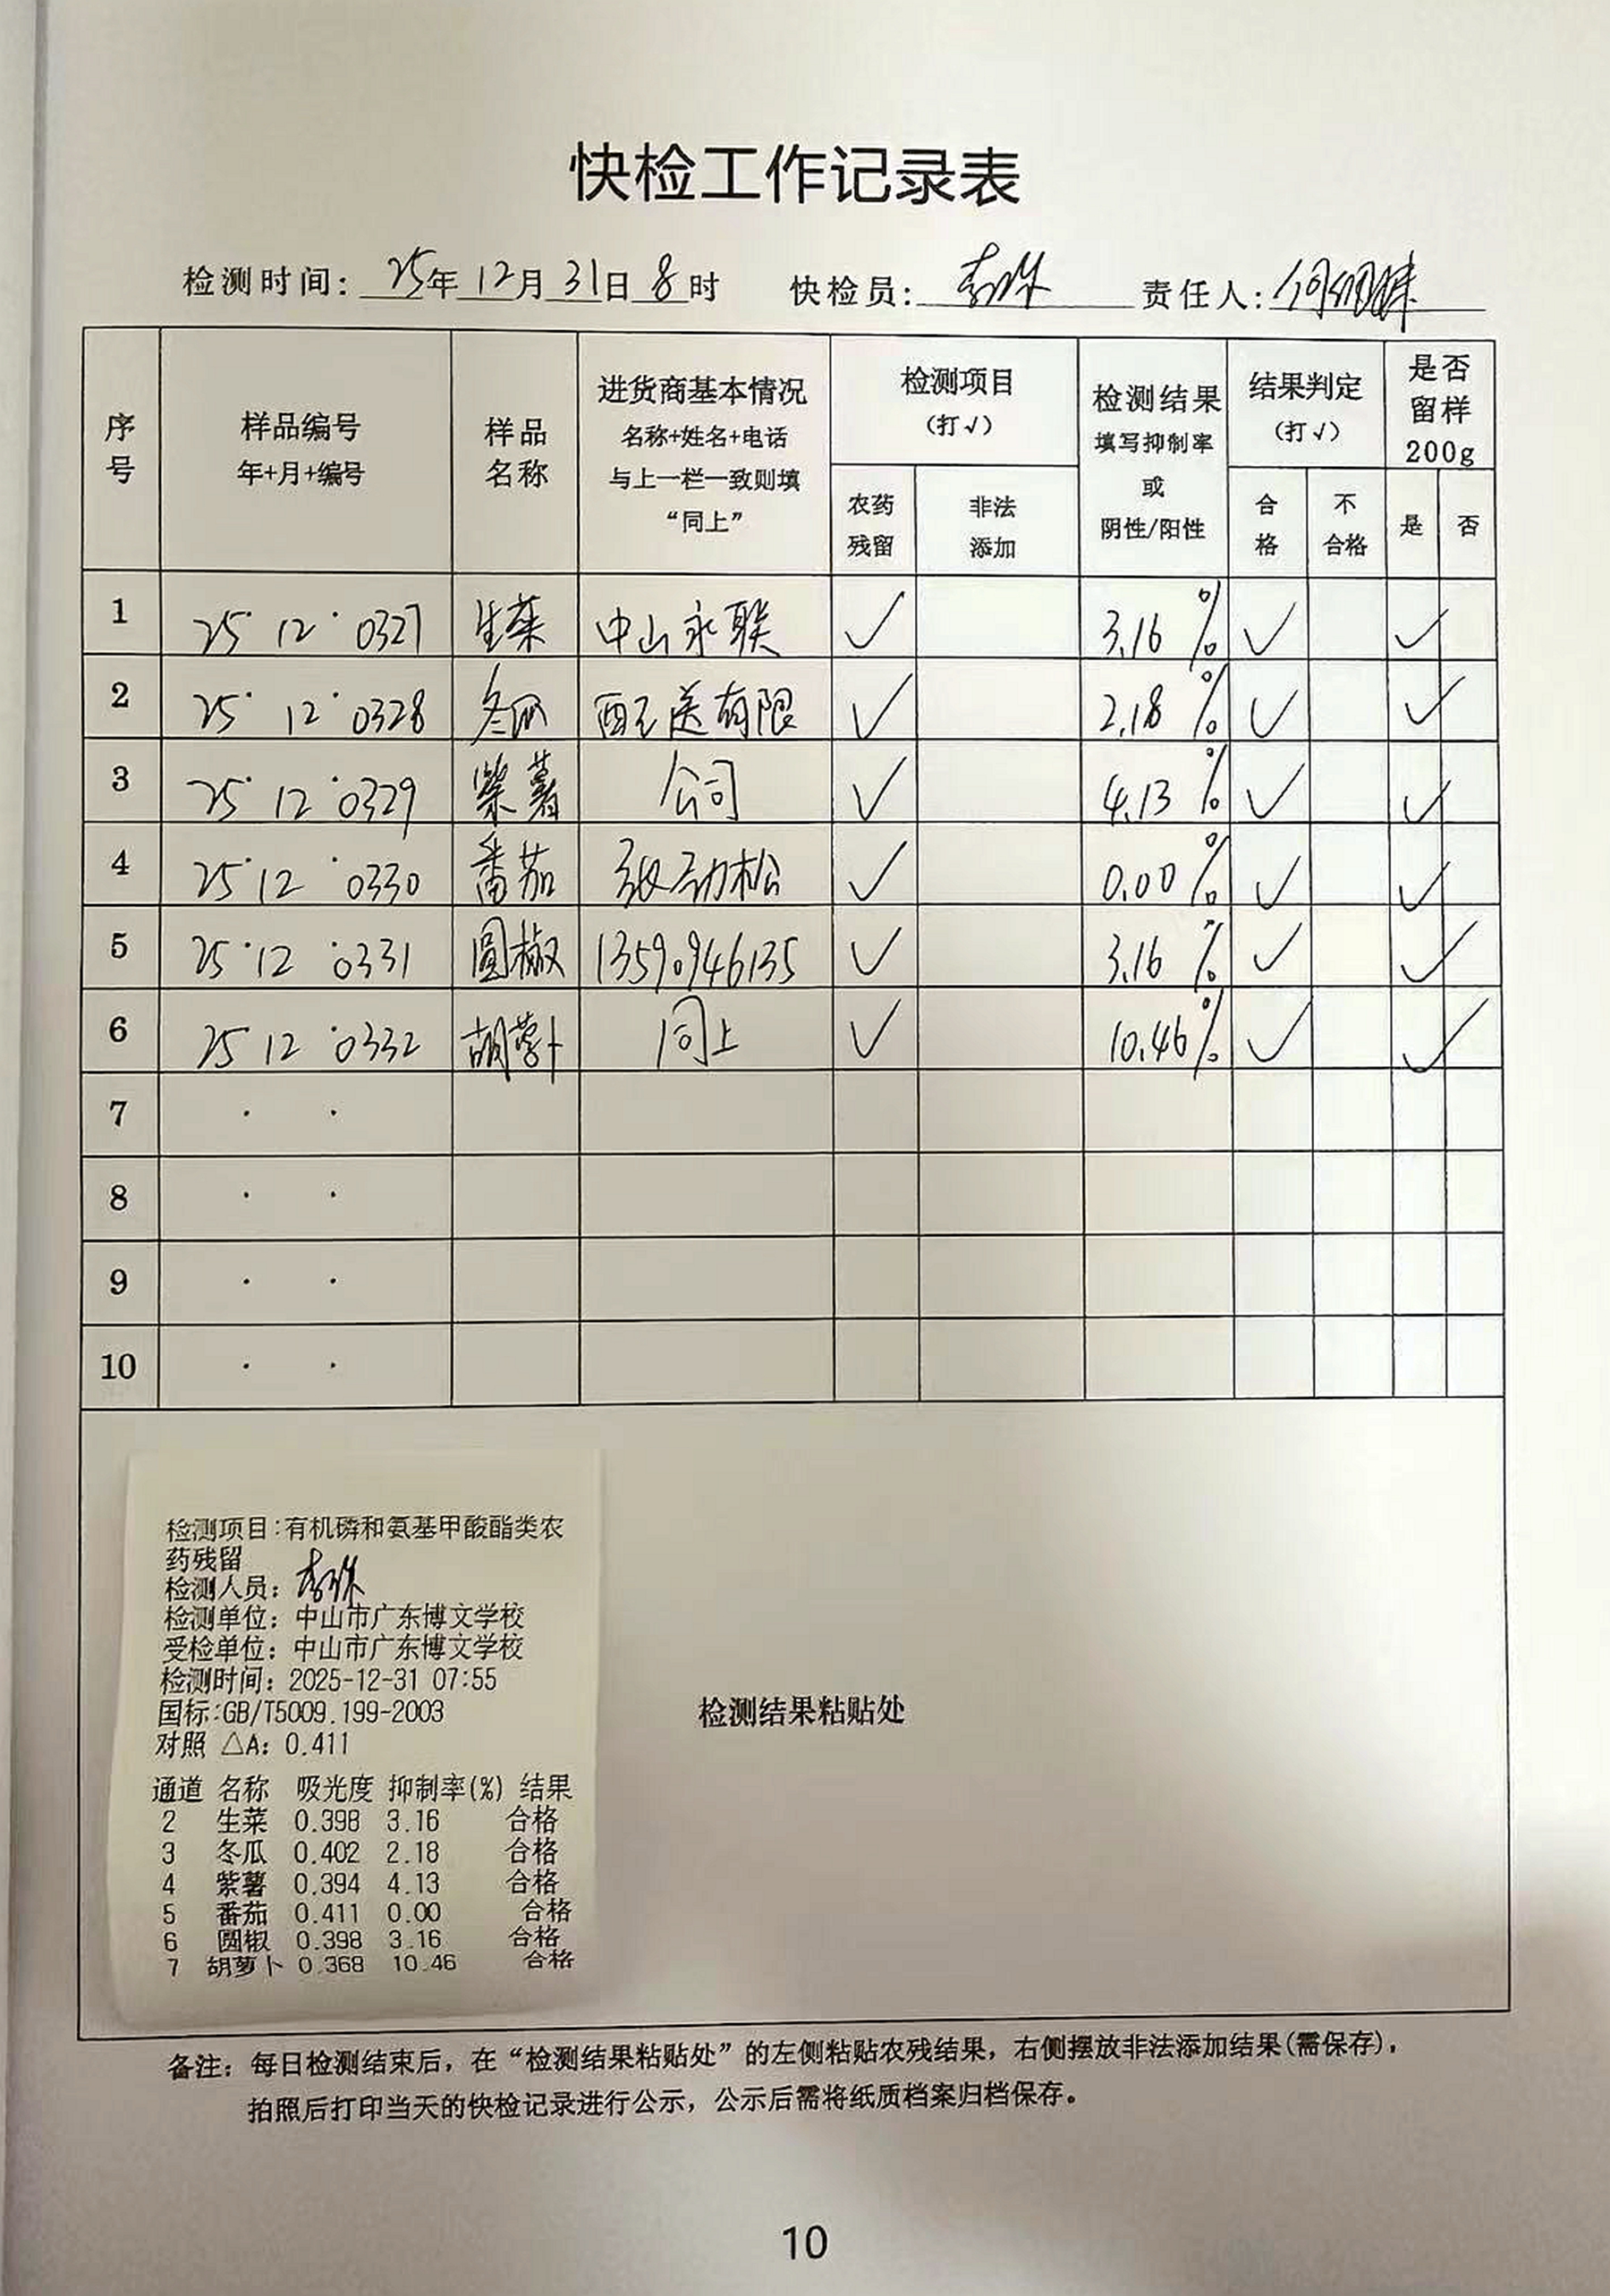 快检工作记录表
检测时间: 25年12月31日8时 快检员: 责任人:
序号 样品编号 年+月+编号 样品名称 进货商基本情况 名称+姓名+电话 与上一栏一致则填“同上” 检测项目 (打√) 农药残留 非法添加 检测结果 填写抑制率 或 阴性/阳性 结果判定 (打√) 合格 不合格 是否留样200g 是 否
1 25·12·0327 生菜 中山永联 √ 3.16% √ √
2 25·12·0328 冬瓜 配送有限 √ 2.18% √ √
3 25·12·0329 紫薯 公司 √ 4.13% √ √
4 25·12·0330 番茄 张劲松 √ 0.00% √ √
5 25·12·0331 圆椒 13590946135 √ 3.16% √ √
6 25·12·0332 胡萝卜 同上 √ 10.46% √ √
7 · ·
8 · ·
9 · ·
10 · ·
检测项目:有机磷和氨基甲酸酯类农
药残留
检测人员:
检测单位: 中山市广东博文学校
受检单位: 中山市广东博文学校
检测时间: 2025-12-31 07:55
国标:GB/T5009.199-2003
对照 △A: 0.411
通道 名称 吸光度 抑制率(%) 结果
2 生菜 0.398 3.16 合格
3 冬瓜 0.402 2.18 合格
4 紫薯 0.394 4.13 合格
5 番茄 0.411 0.00 合格
6 圆椒 0.398 3.16 合格
7 胡萝卜 0.368 10.46 合格
检测结果粘贴处
备注: 每日检测结束后, 在“检测结果粘贴处”的左侧粘贴农残结果, 右侧摆放非法添加结果(需保存),
拍照后打印当天的快检记录进行公示, 公示后需将纸质档案归档保存。
10